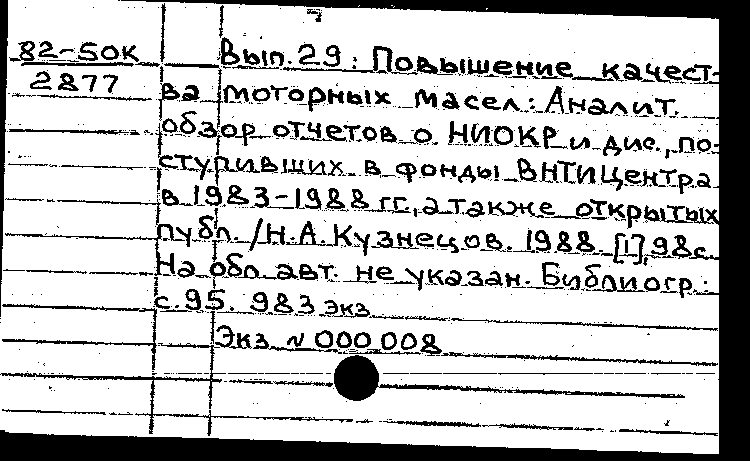 82-50к
2877
Вып. 29: Повышение качест-
ва моторных масел: Аналит.
обзор отчетов о НИОКР и дис., по-
ступивших в фонды ВНТИЦентра
в 1983-1988 гг., а также открытых
публ. / Н.А. Кузнецов. 1988. [1], 98 с.
На обл. авт. не указан. Библиогр.:
с. 95. 983 экз
Экз № 000 008